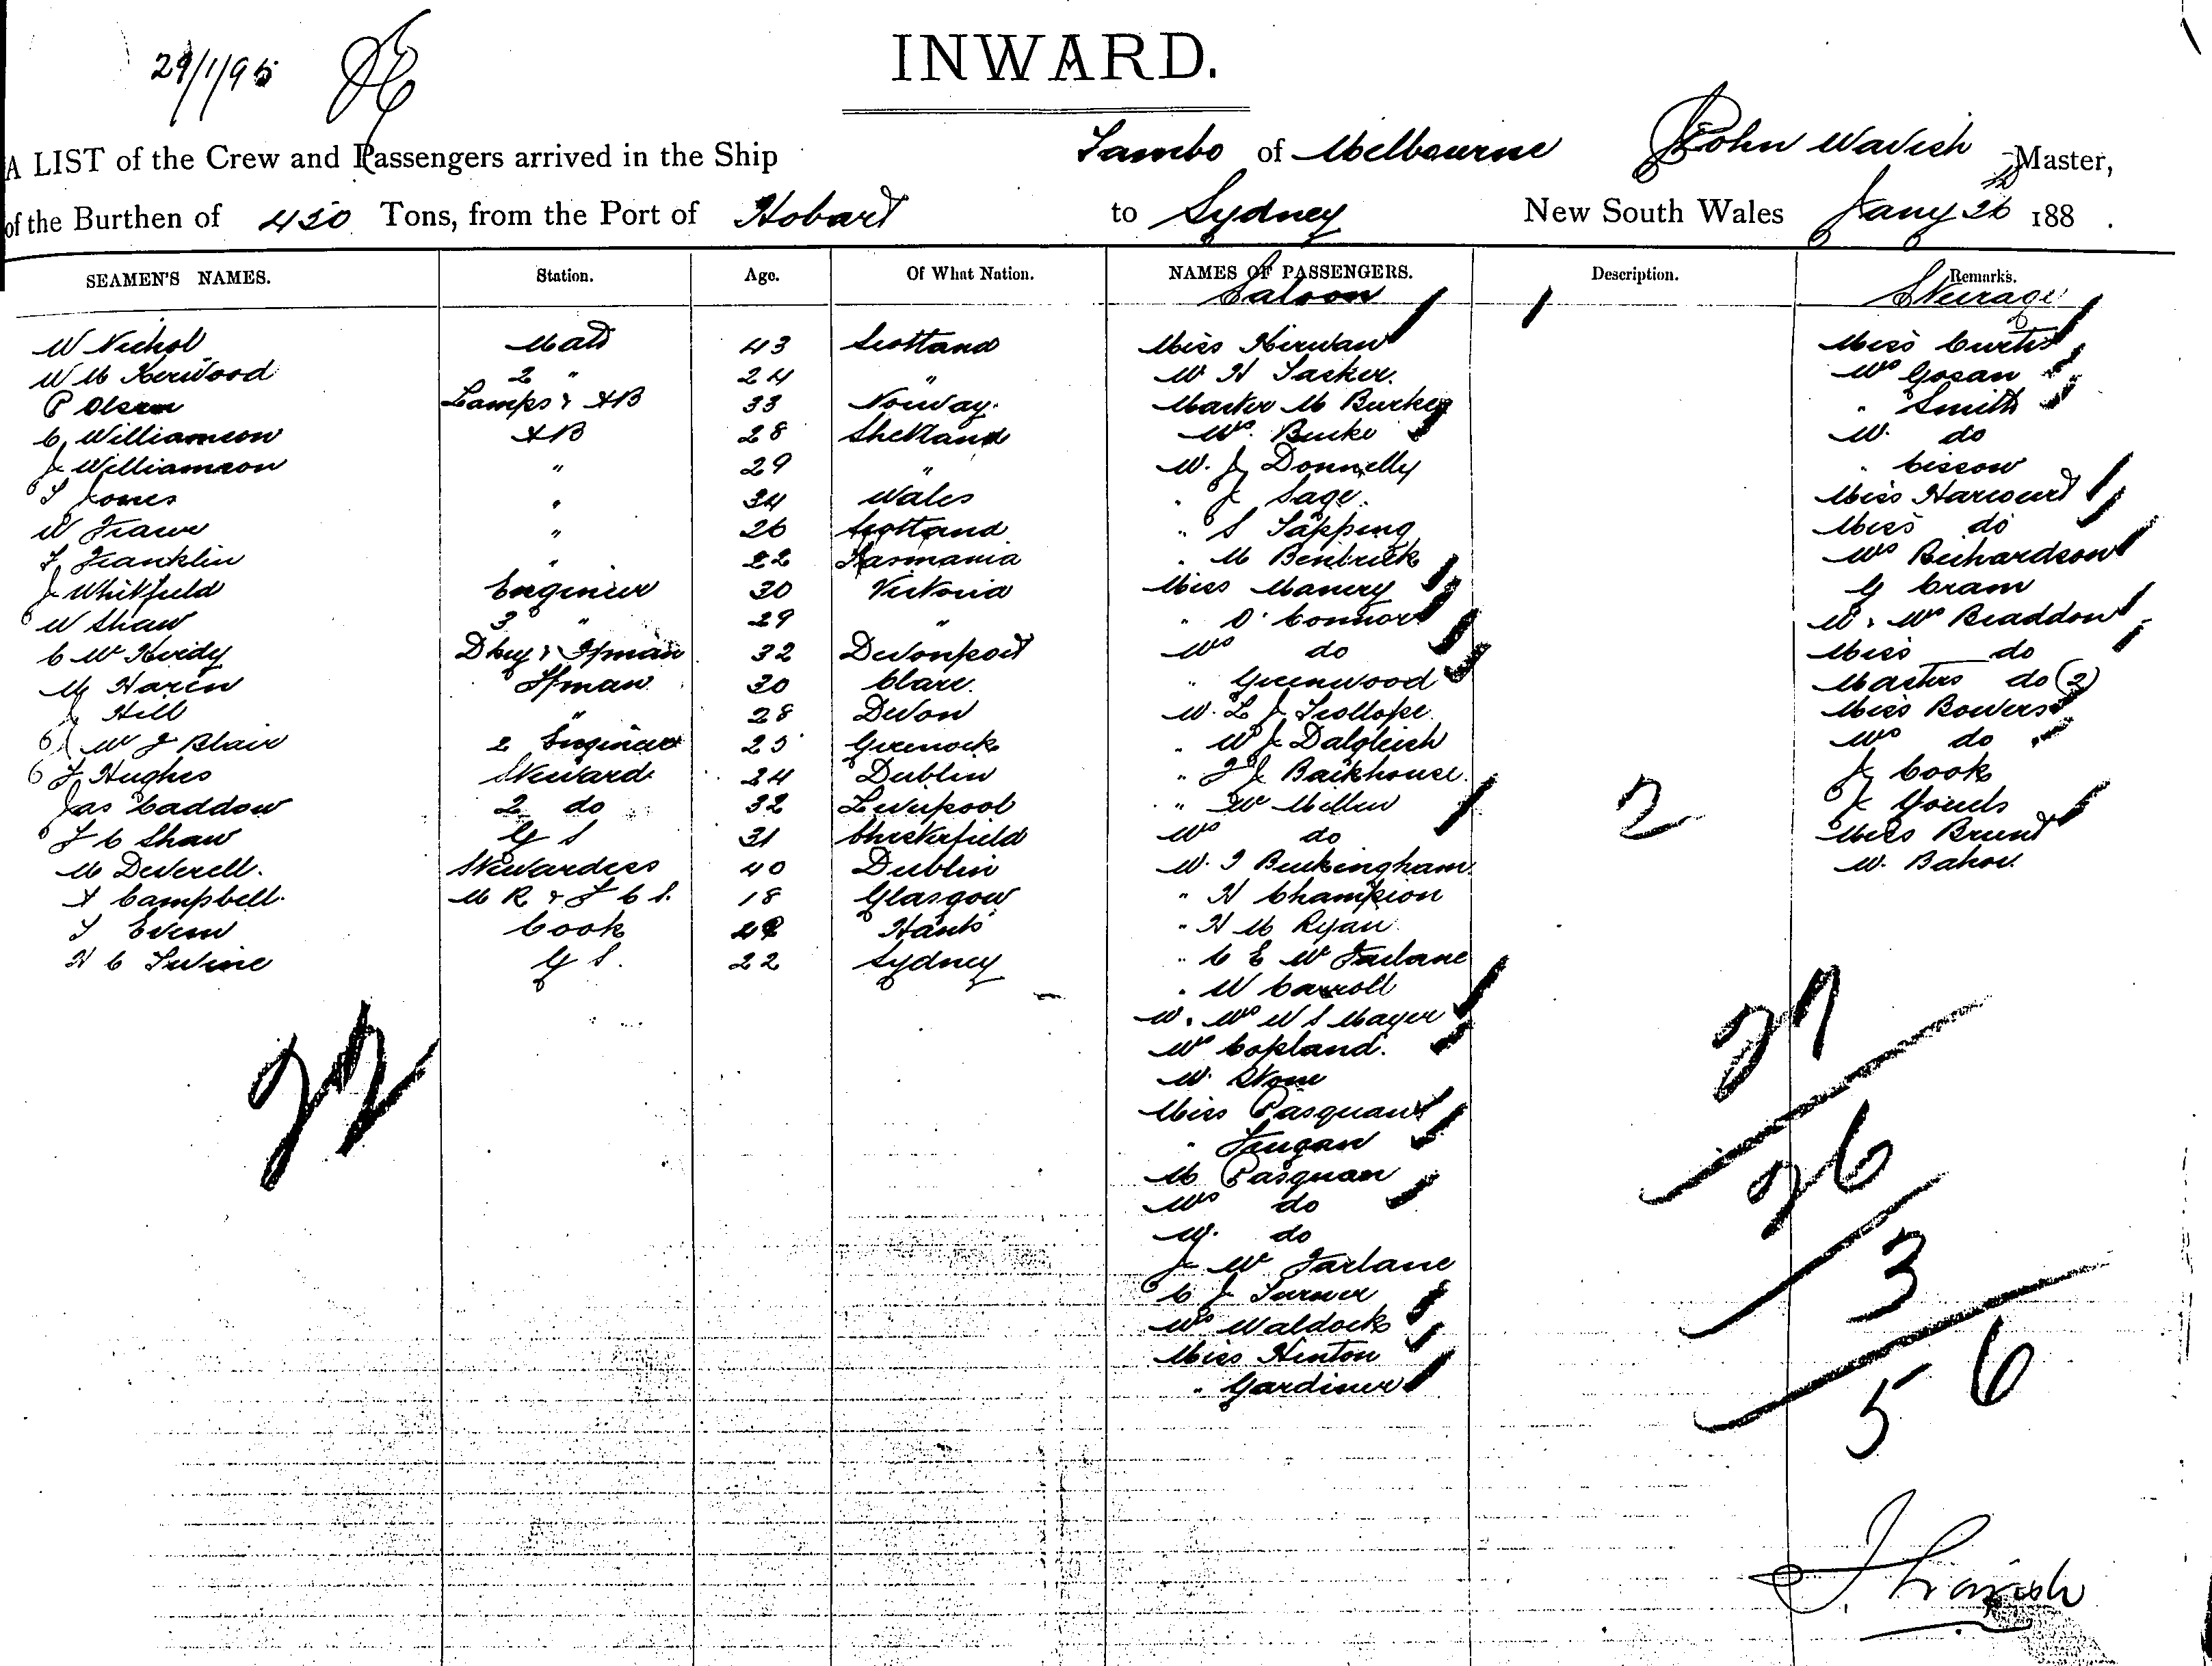 29/1/95
INWARD.
A LIST of the Crew and Passengers arrived in the Ship Tambo of Melbourne John Wavish Master,
of the Burthen of 450 Tons, from the Port of Hobart to Sydney New South Wales Jany 26th 188 .
SEAMEN'S NAMES. Station. Age. Of What Nation. NAMES OF PASSENGERS. Description. Remarks.
Saloon Steerage
W Nichol Mate 43 Scotland Miss Kirwan Miss Curtis
W M Kerwood 2 " 24 " Mr H Tasker. Mrs Gosan
P Olsen Lamps & AB 33 Norway. Master M Burke " Smith
C Williamson AB 28 Shetland Mrs. Burke Mr. do
J Williamson " 29 " Mr. J Donnelly " Cissow
T Jones " 34 Wales " J Sage. Miss Harcourt
W " 26 Scotland " S Tapping Miss do
T Franklin " 22 Tasmania " M Mrs Richardson
J Whitfield Engineer 30 Victoria Miss Manery G Cram
W Shaw 3 " 29 " " O'Connor Mr & Mrs Braddon
C W Dkey & Ffman 32 Devonport Mrs do Miss do
M Haren Ffman 30 Clare. " Greenwood Masters do (2)
J Hill " 28 Devon Mr. L J Trollope. Miss Bowers
W J Blair 2 Engineer 25 Greenock " W J Dalgleish Mrs do
J Hughes Steward. 24 Dublin " J J Backhouse. J Cook
Jas Caddow 2 do 32 Liverpool " J
T C Shaw G S 31 Chesterfield Mrs do Miss Brunt
M Deverell. Stewardess 40 Dublin Mr. J Buckingham. Mr. Baker.
A Campbell. M R & F C S. 18 Glasgow " H Champion
T Cook Hants " H M Ryan
H C Irvine G S. 22 Sydney " C E McFarlane
" W Carroll
Mr & Mrs W S Mayer
Mrs Copland.
Mr. Stone
Miss Pasquan
M Pasquan
Mrs do
Mr. do
J McFarlane
C J Turner
Mrs Waldock
Miss Hinton
" Gardiner
2
22
27
26
3
56